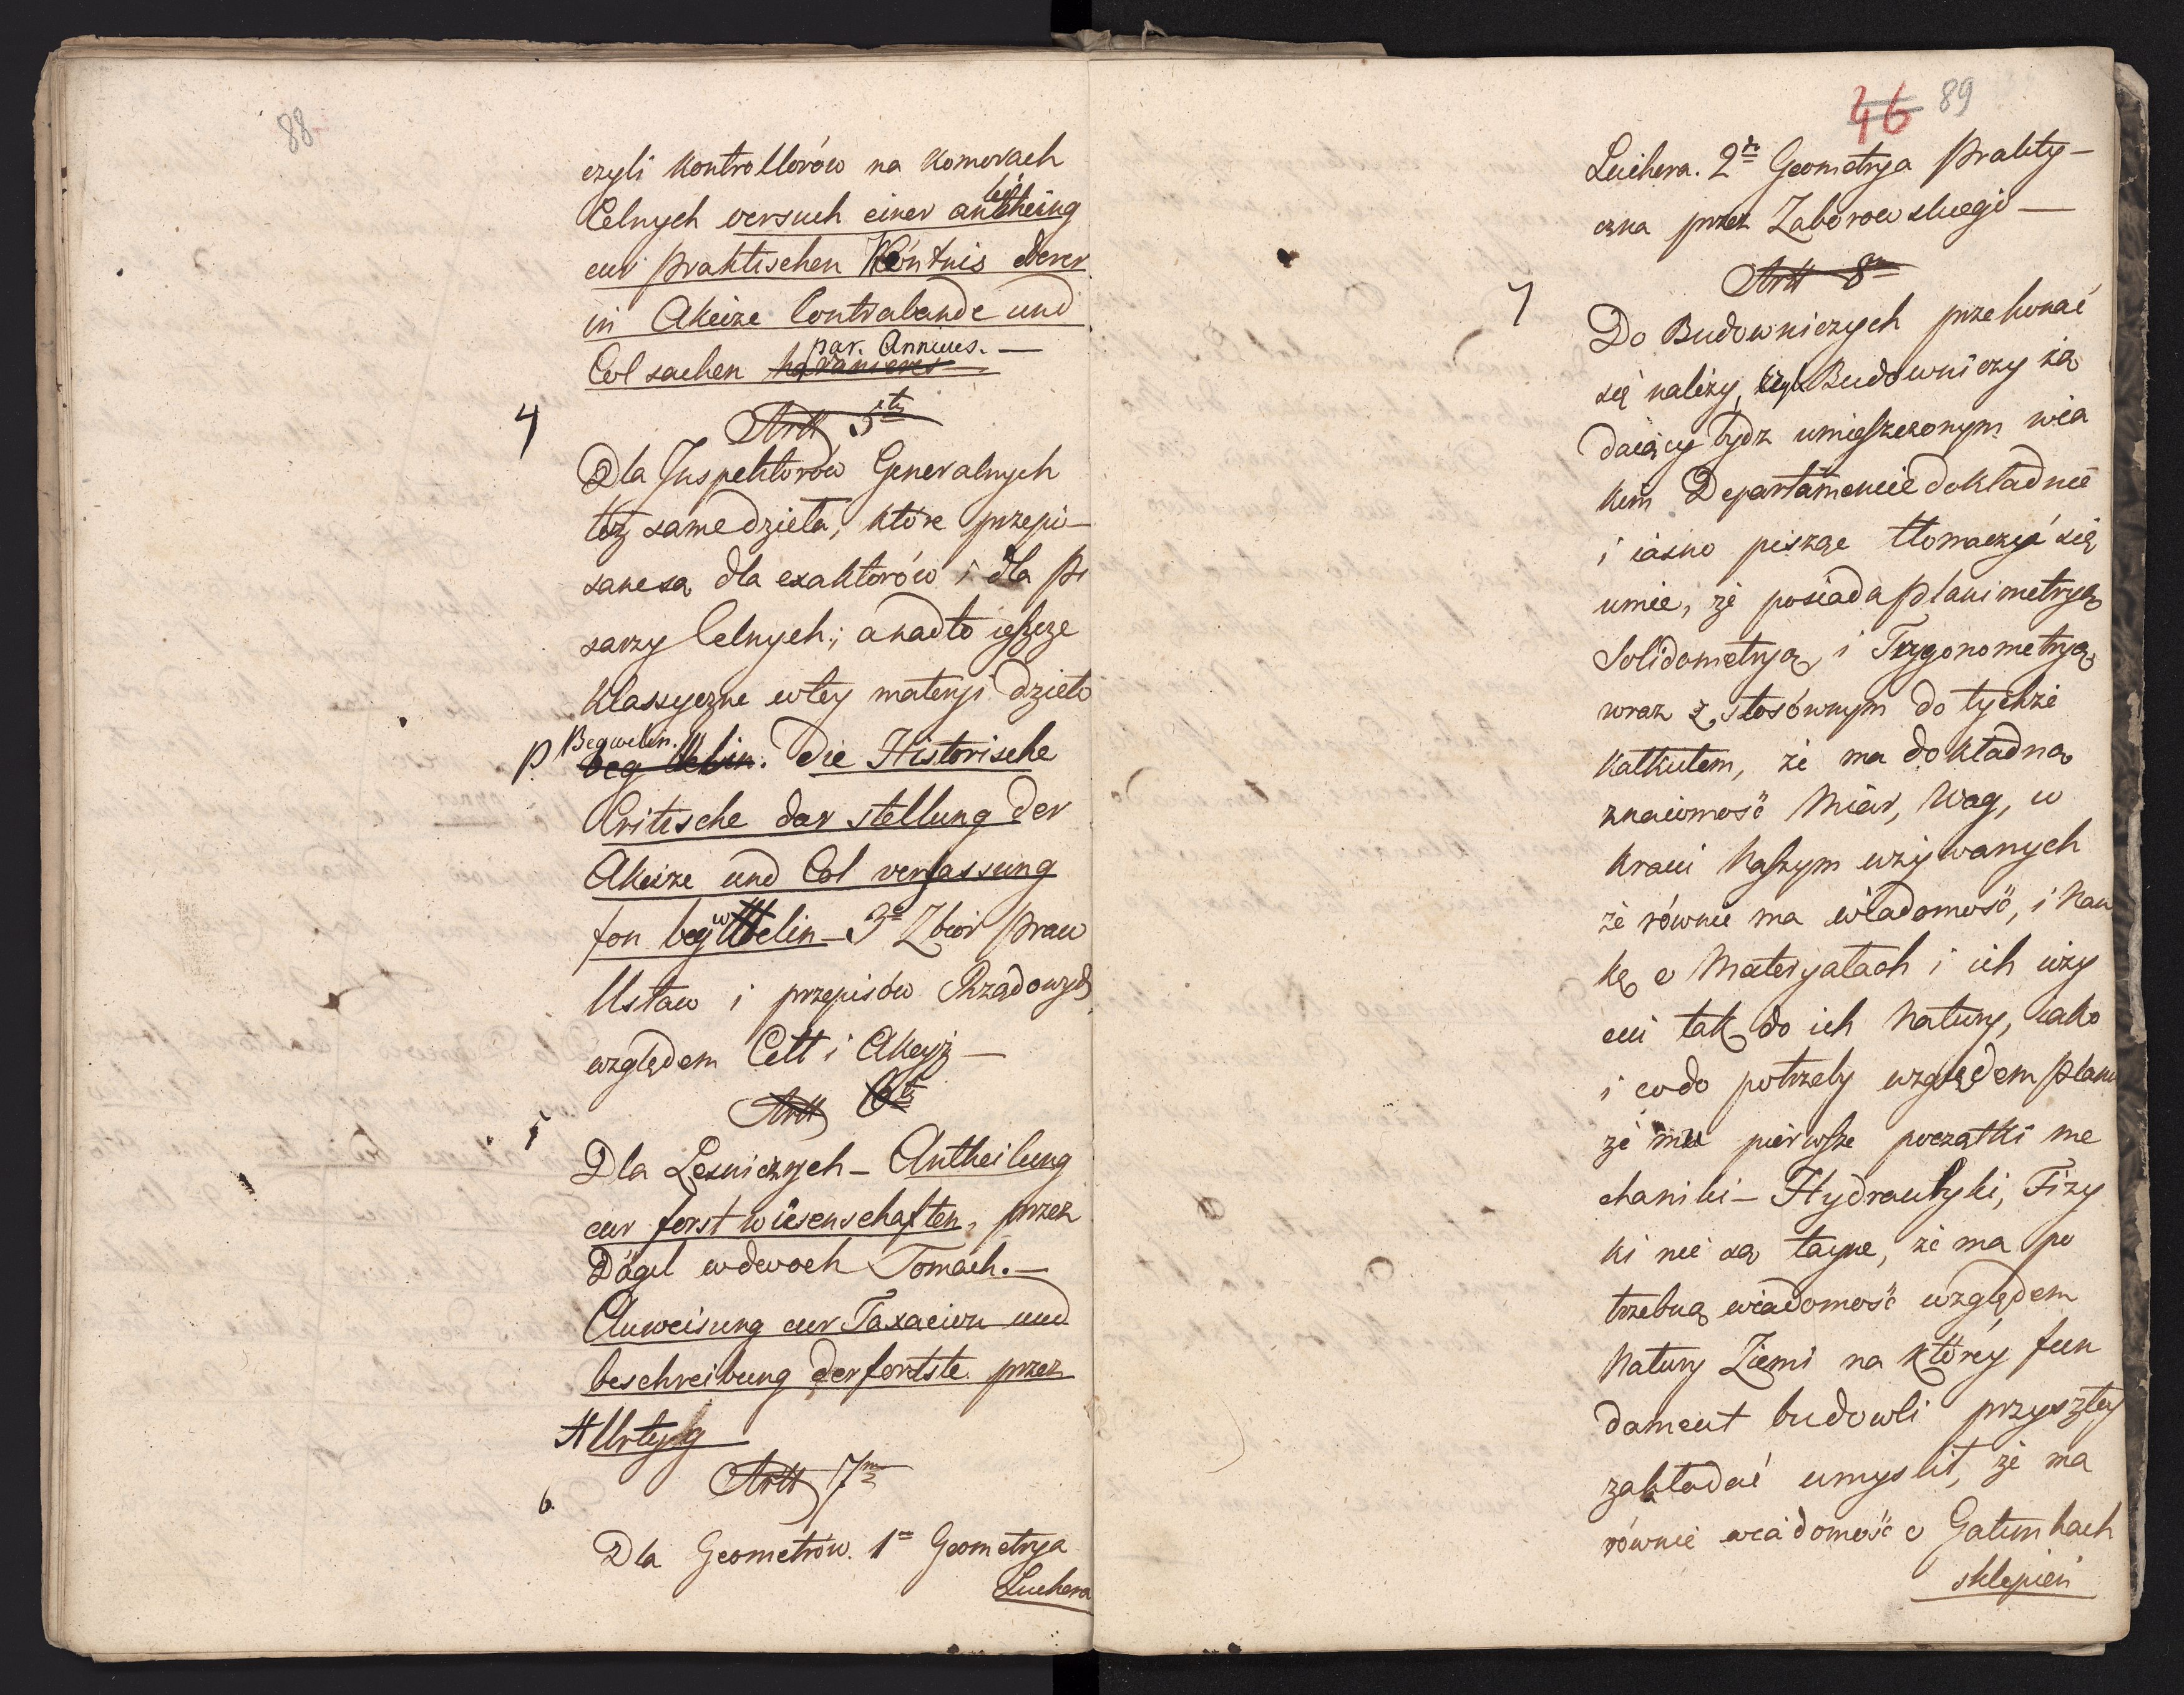 88
czyli Kontrollorów na Komorach
Celnych versuch einer antheing
lei
cur praktischen Köntnis derer
in Akcize Contrabande und
par. Annius. —
Col sachen
4
Artt 5ty
Dla Inspektorów Generalnych
też same dzieła, które przepi-
sane są dla exaktorów i dla Pi
sarzy Celnych; a nadto ieszcze
Klassyczne w tey materyi dzieło
Begwelin.
P. beg Welin. Die Historische
Critische dar stellung der
Akcize und Col verfassung
fon begwelin — 3e Zbiór praw
Ustaw i przepisów Rządowych
względem Cełł i Akcyz —
Artt 6ty
5
Dla Lesniczych — Antheilung
cur forst wiesenschaften, przez
Dögel w dwoch Tomach. —
Anweisung cur Taxacion und
beschreibung der fortste przez
Artt 7m
6.
Dla Geometrów. 1e Geometrya
Luchera
46 89
Luchera. 2da Geometrya prakty-
czna przez Zaborowskiego —
Artt 8m
7
Do Budowniczych przekonać
się należy, czyli Budowniczy żą
daiący bydz umieszczonym w ia
kim Departamencie dokładnie
i iasno pisząc tłomaczyć się
umie, że posiada Planimetryą
Solidometryą i Trygonometryą
wraz z stosównym do tychże
kalkułem, że ma dokładną
znaiomość Miar, Wag, w
Kraiu Naszym używanych
że równie ma wiadomość, i Nau
kę o Materyałach i ich uży
ciu tak do ich Natury, iako
i co do potrzeby względem planu
że mu pierwsze początki me
chaniki — Hydraulyki, Fizy
ki nie są tayne, że ma po
trzebną wiadomość względem
Natury Ziemi na któréy fun
dament budowli przyszłey
zakładać umyslił, że ma
równie wiadomość o Gatunkach
sklepień